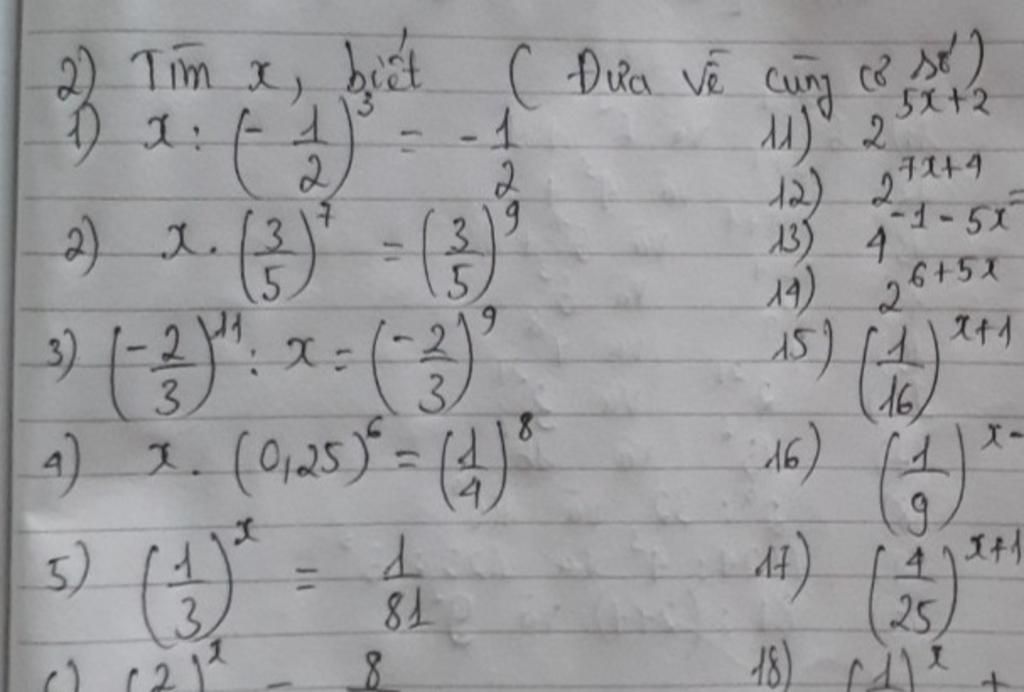 2) Tìm x, biết ( Đưa về cùng cơ số )
1) x : (-1/2)^3 = -1/2
2) x . (3/5)^7 = (3/5)^9
3) (-2/3)^11 : x = (-2/3)^9
4) x . (0,25)^6 = (1/4)^8
5) (1/3)^x = 1/81
11) 2^5x+2
12) 2^7x+4 =
13) 4^-1-5x
14) 2^6+5x
15) (1/16)^x+1
16) (1/9)^x-
17) (4/25)^x+1
18) (1)^x +